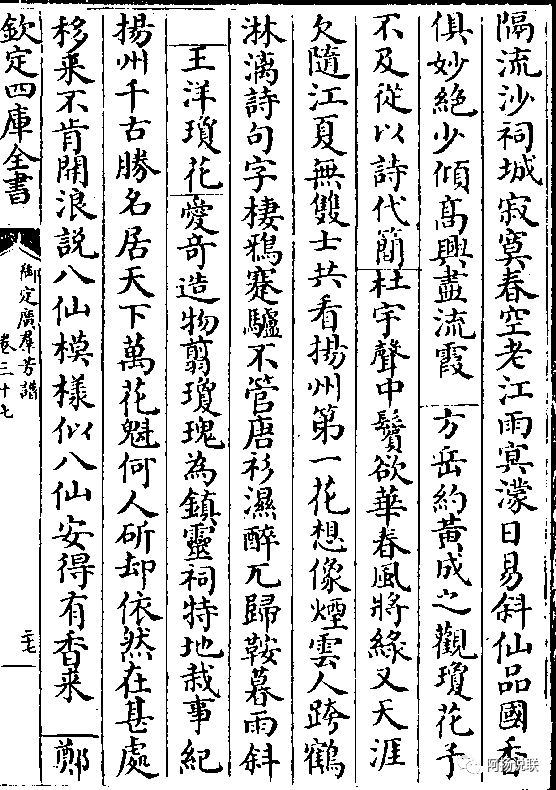 隔流沙祠城寂寞春空老江雨冥濛日易斜仙品國香
俱妙絶少傾髙興盡流霞　方岳約黃成之觀瓊花子
不及從以詩代簡杜宇聲中鬢欲華春風將緑又天涯
欠隨江夏無雙士共看揚州第一花想像煙雲人跨鶴
淋漓詩句字棲鴉蹇驢不管唐衫濕醉兀歸鞍暮雨斜
王洋瓊花愛奇造物翦瓊瑰為鎮靈祠特地栽事紀
揚州千古勝名居天下萬花魁何人斫却依然在甚處
移来不肯開浪說八仙模樣似八仙安得有香来　鄭
欽定四庫全書
御定廣羣芳譜
卷三十七
三七
阿扬说联